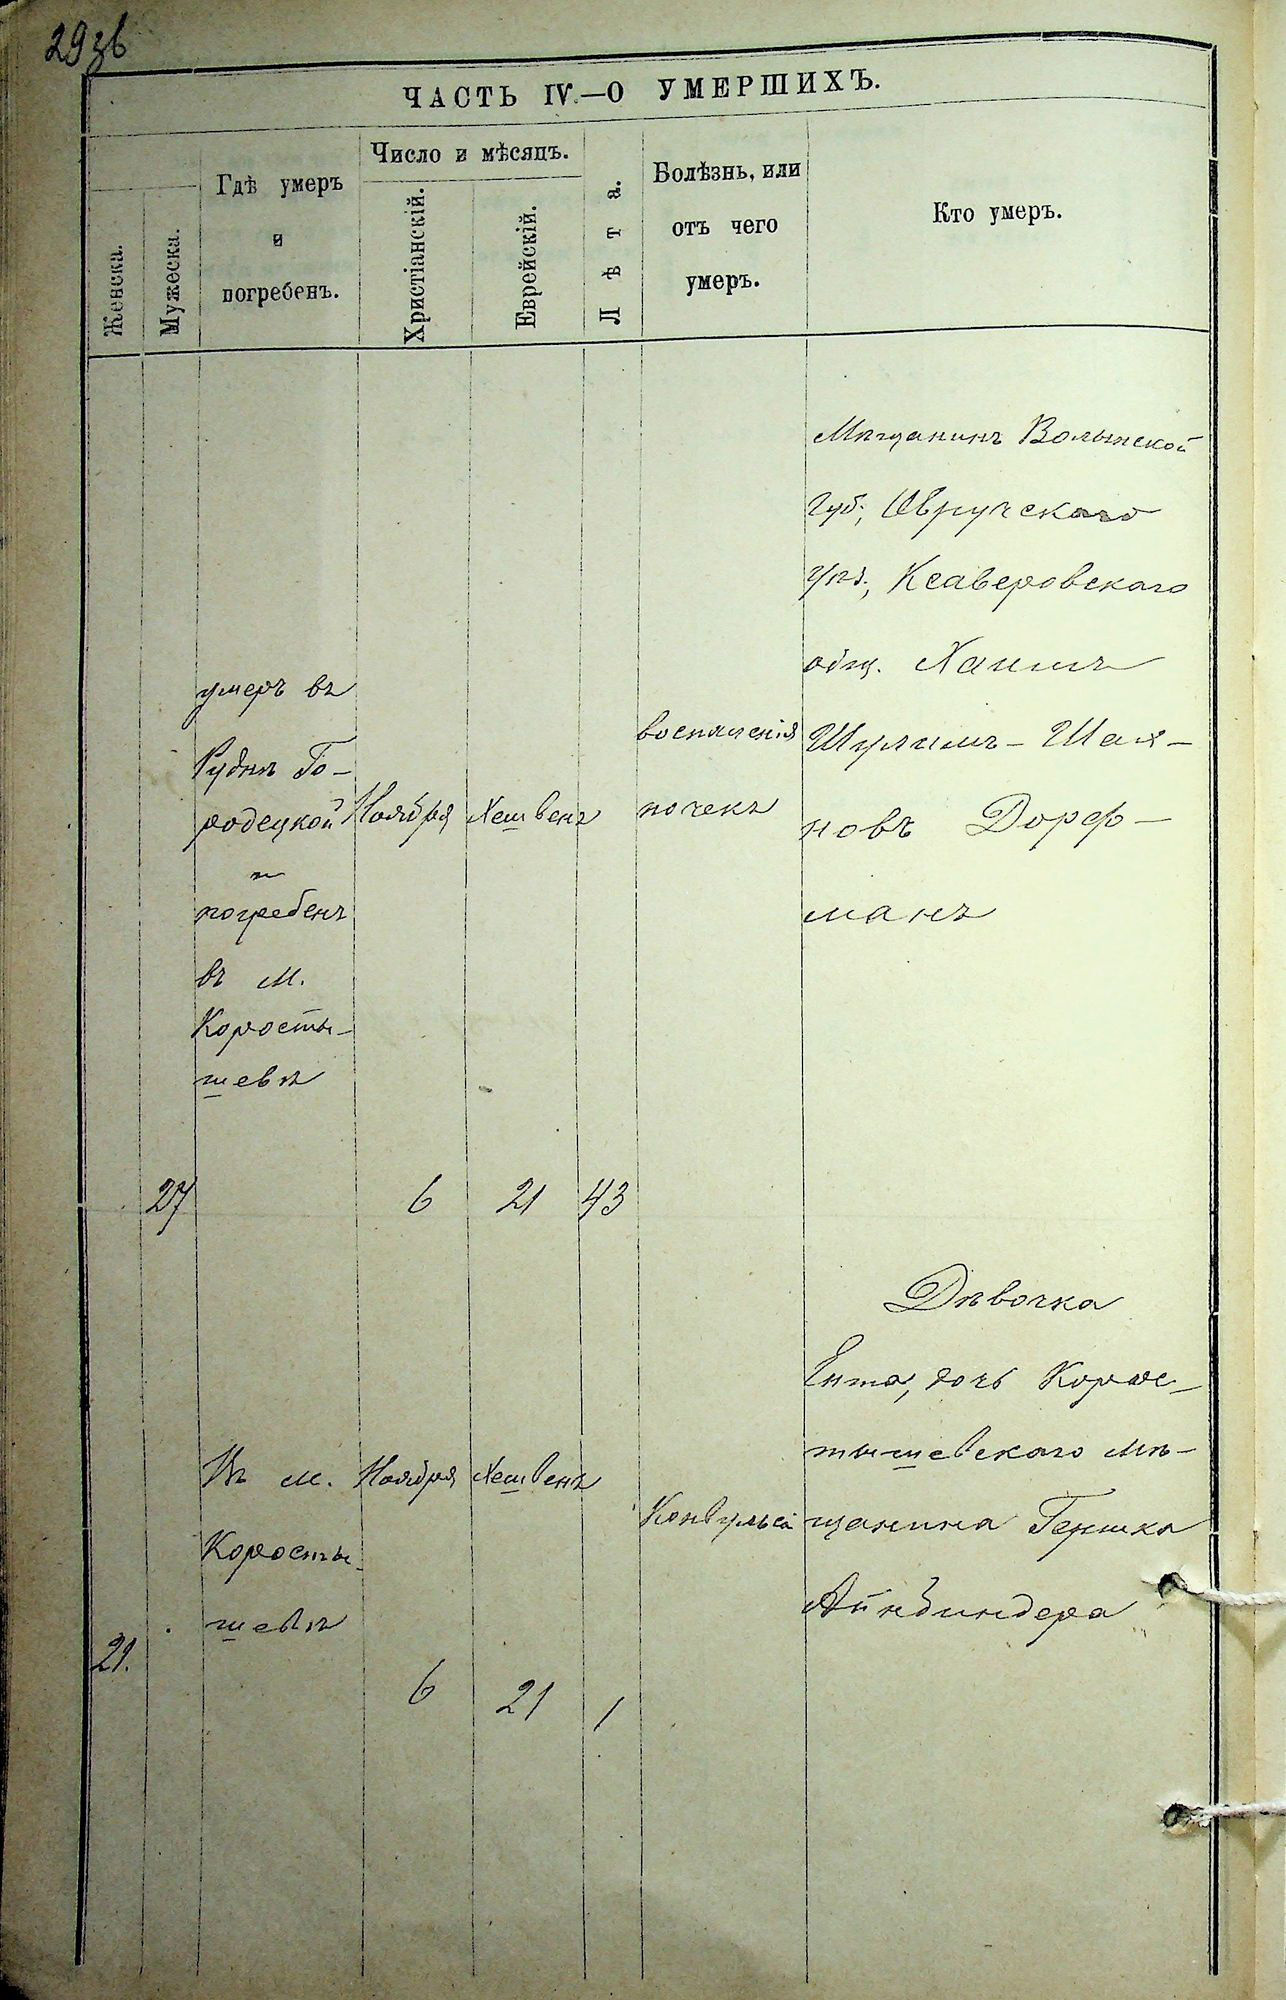 29зв
ЧАСТЬ IV.—О УМЕРШИХЪ.
Женска.
Мужеска.
Гдѣ умеръ
и
погребенъ.
Число и мѣсяцъ.
Христіанскій.
Еврейскій.
Лѣта.
Болѣзнь, или
отъ чего
умеръ.
Кто умеръ.
27
умеръ въ
Рудни Го-
родецкой
и
погребенъ
въ м.
Коросты-
шевѣ
Ноября
6
Хешвенъ
21
43
воспаленія
почекъ
Мѣщанинъ Волынской
губ., Овручскаго
уѣз., Ксаверовскаго
общ. Хаимъ
Шулимъ-Шая-
новъ Дорф-
манъ
21.
Въ м.
Коросты-
шевѣ
Ноября
6
Хешвенъ
21
1
Конвульсій
Дѣвочка
Ента, дочь Корос-
тышевскаго мѣ-
щанина Гершка
Айнбиндера